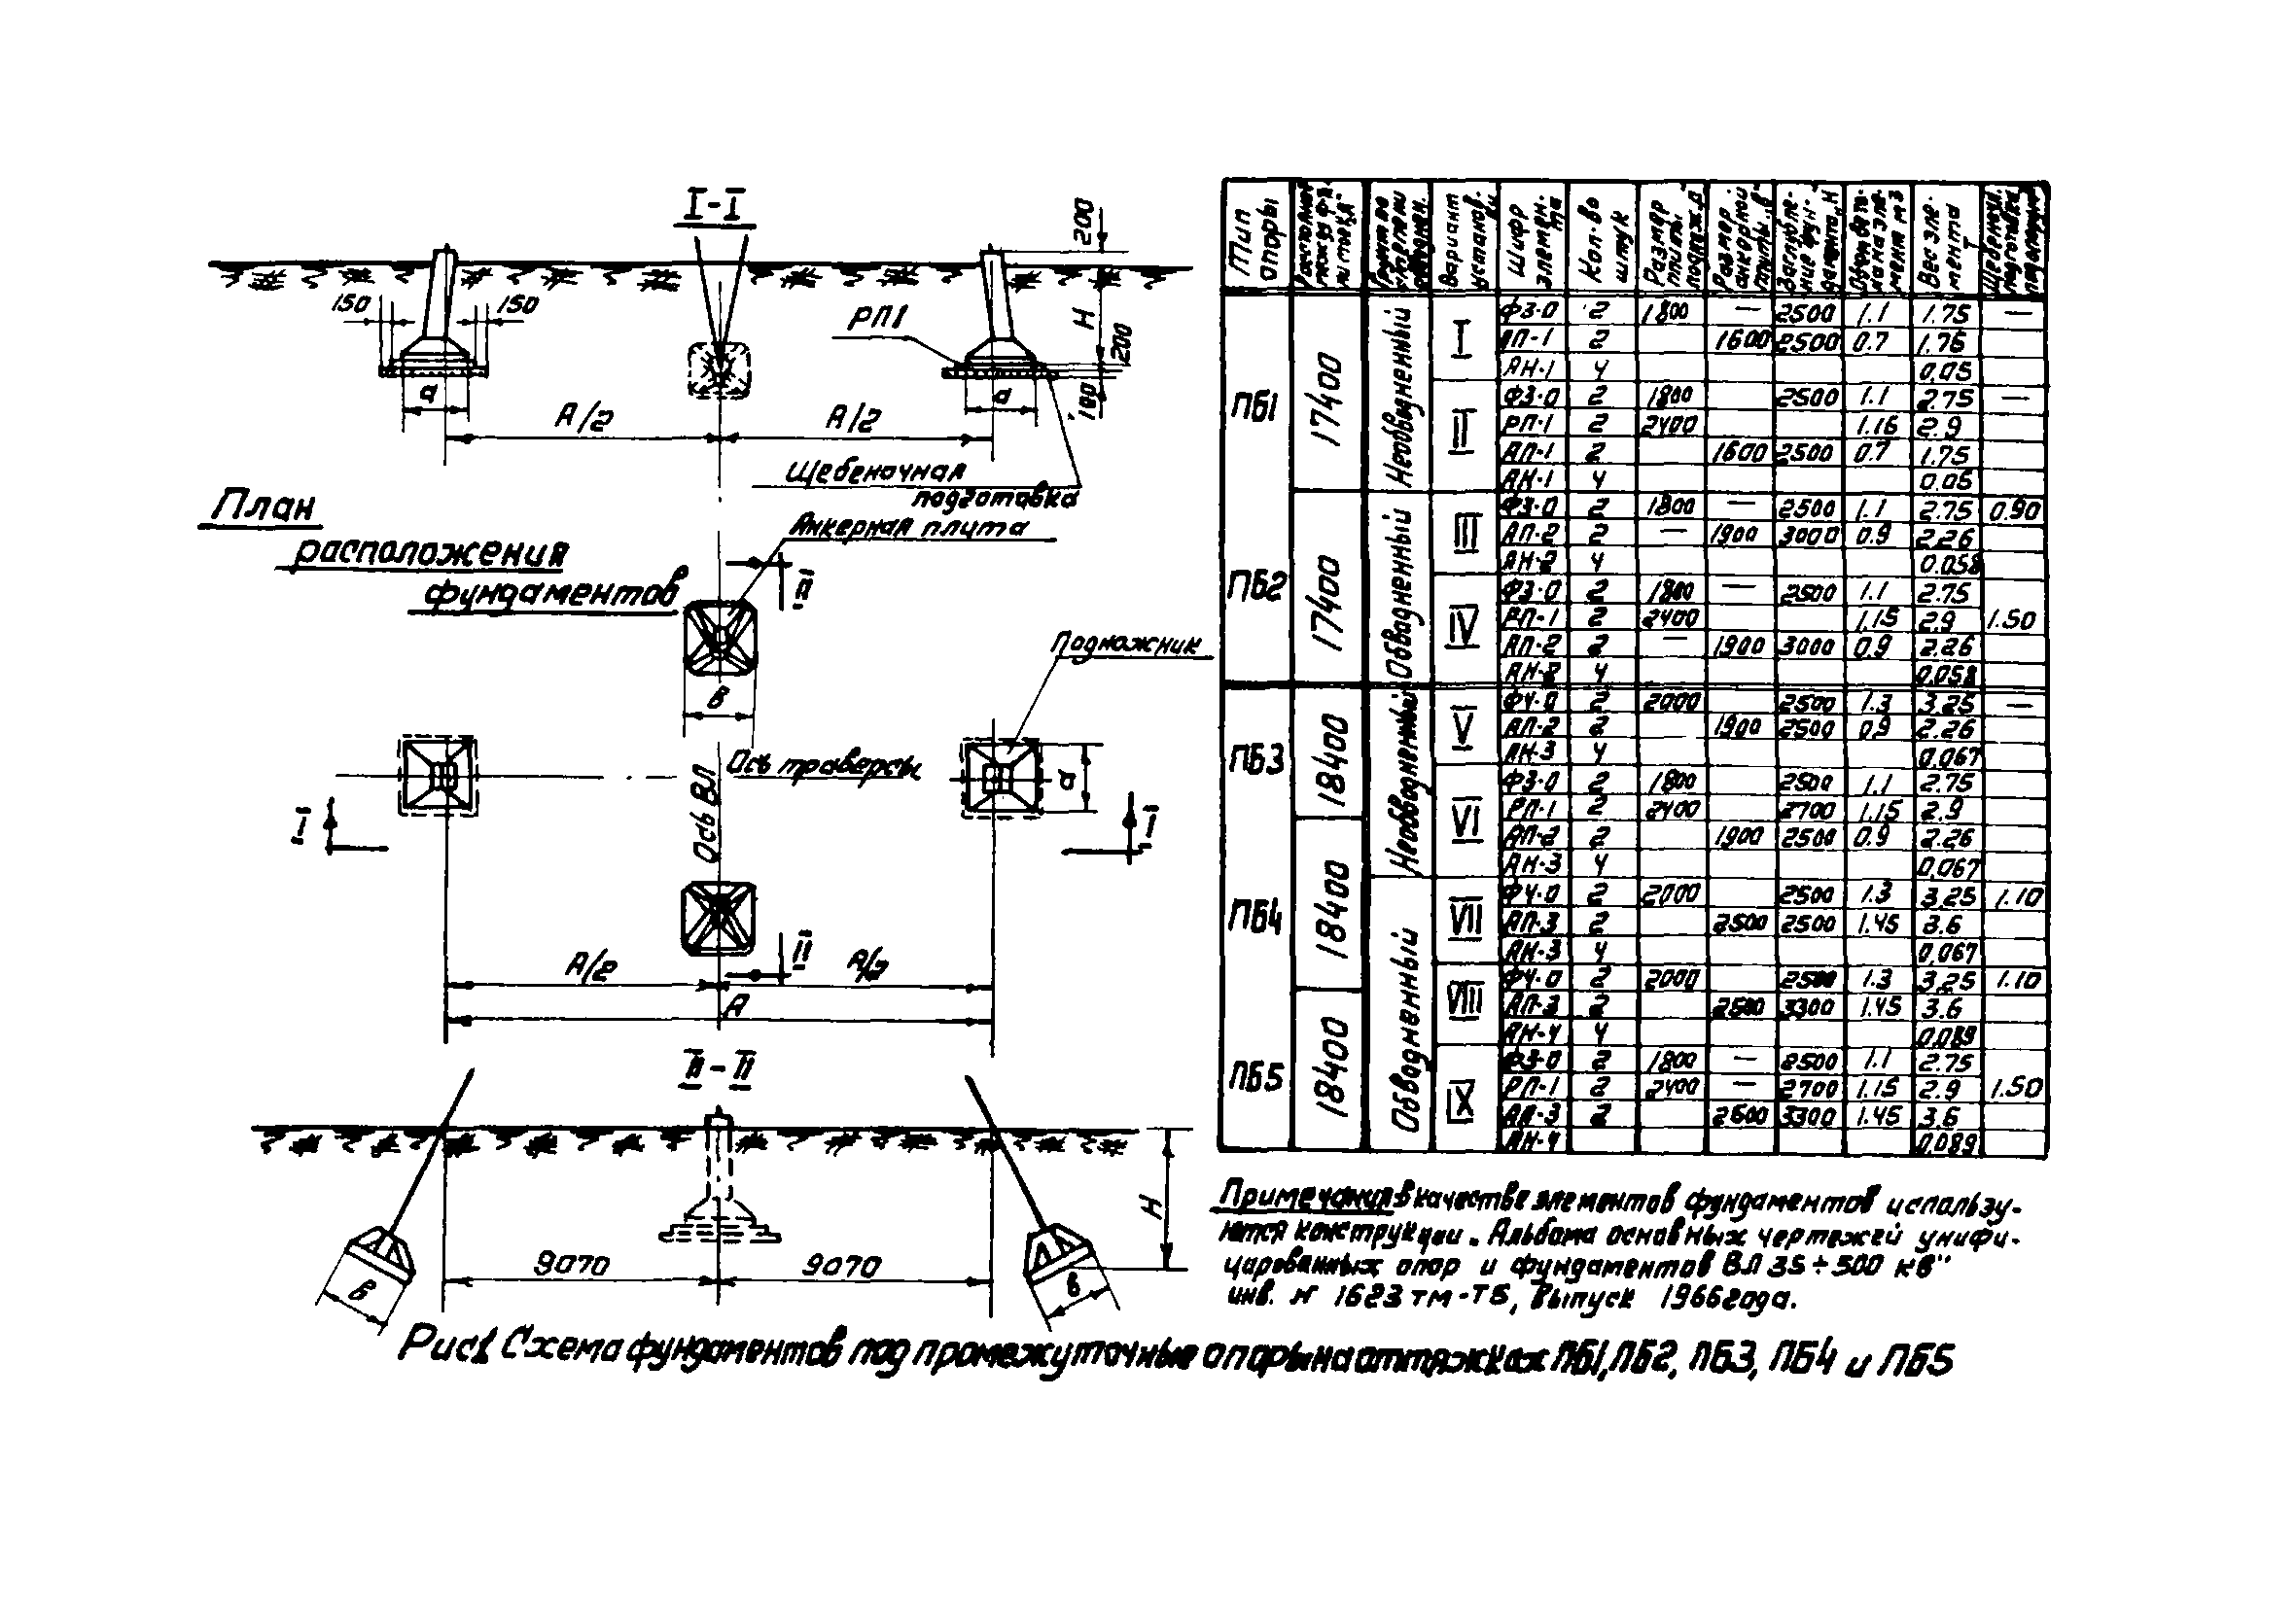 I-I
200
150
150
РП1
Н
200
100
а
а
А/2
А/2
Щебеночная
подготовка
План
расположения
фундаментов
Анкерная плита
II
Подножник
В
Ось траверсы
Ось ВЛ
а
I
I
II
А/2
А/2
А
II-II
Н
9070
9070
В
в
Тип опоры
Вариант установ.
Шифр элемен-та
Кол-во штук
Размер плиты
Размер анкорной плиты „в"
Вес эле-мента т
ПБ1 17400 Необводненный
I
Ф3-0 2 1800 — 2500 1.1 1.75 —
АП-1 2 1600 2500 0.7 1.76
АН-1 4 0,05
II
Ф3-0 2 1800 2500 1.1 2.75 —
РП-1 2 2400 1.16 2.9
АП-1 2 1600 2500 0.7 1.75
АН-1 4 0.05
ПБ2 17400 Обводненный
III
Ф3-0 2 1800 — 2500 1.1 2.75 0.90
АП-2 2 — 1900 3000 0.9 2.26
АН-2 4 0.058
IV
Ф3-0 2 1800 — 2500 1.1 2.75
РП-1 2 2400 1.15 2.9 1.50
АП-2 2 — 1900 3000 0.9 2.26
АН-2 4 0,058
ПБ3 18400 Необводненный
V
Ф4-0 2 2000 2500 1.3 3.25 —
АП-2 2 1900 2500 0,9 2.26
АН-3 4 0,067
VI
Ф3-0 2 1800 2500 1.1 2.75
РП-1 2 2400 2700 1.15 2.9
АП-2 2 1900 2500 0.9 2.26
АН-3 4 0,067
ПБ4 18400 Обводненный
VII
Ф4-0 2 2000 2500 1.3 3,25 1.10
АП-3 2 2500 2500 1.45 3.6
АН-3 4 0,067
VIII
Ф4-0 2 2000 2500 1.3 3,25 1.10
АП-3 2 2500 3300 1.45 3.6
АН-4 4 0,089
ПБ5 18400
IX
Ф3-0 2 1800 — 2500 1.1 2.75
РП-1 2 2400 — 2700 1.15 2.9 1.50
АП-3 2 2600 3300 1.45 3.6
АН-4 0,089
Примечания: в качестве элементов фундаментов использу-
ются конструкции „Альбома основных чертежей унифи-
цированных опор и фундаментов ВЛ 35÷500 кв"
инв. № 1623 тм-Т5, Выпуск 1966 года.
Рис1 Схема фундаментов под промежуточные опоры на оттяжках ПБ1, ПБ2, ПБ3, ПБ4 и ПБ5